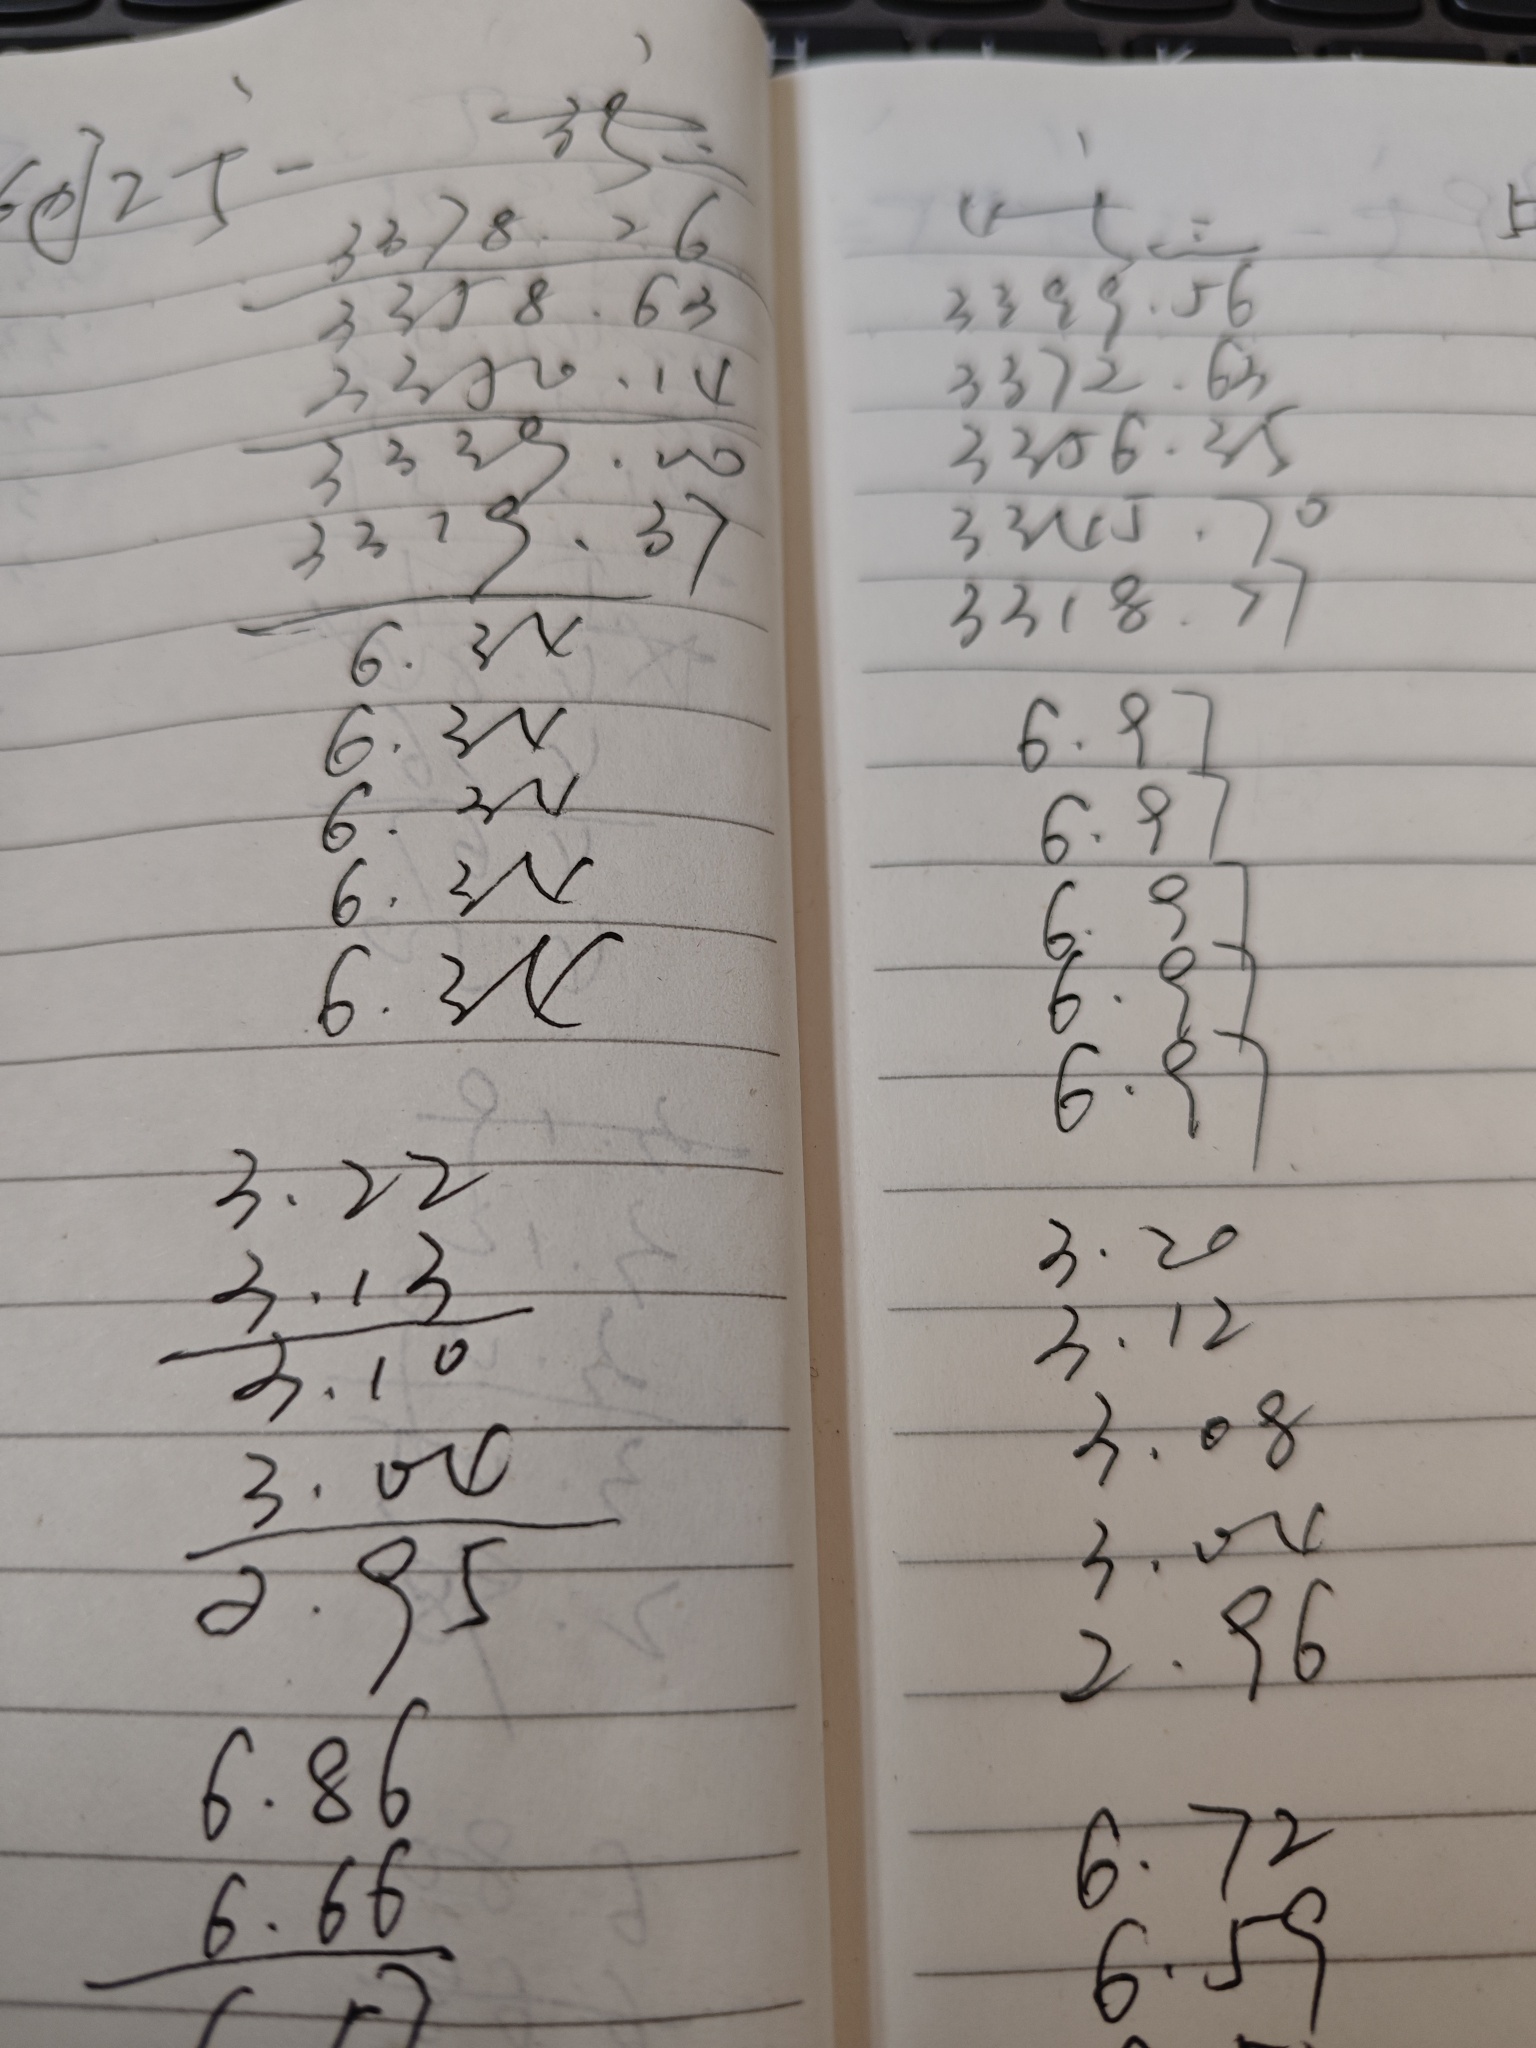 3378.26
3358.63
3350.14
3339.00
3319.37
6.34
6.34
6.34
6.34
6.34
3.22
3.13
3.10
3.04
2.95
6.86
6.66
3399.56
3372.63
3356.35
3345.70
3318.77
6.97
6.97
6.97
6.97
6.97
3.20
3.12
3.08
3.04
2.96
6.72
6.59